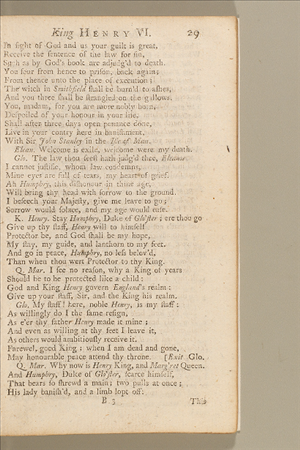 King HENRY VI. 29
In sight of God and us your guilt is great,
Receive the sentence of the law for sin,
Such as by God's book are adjudg'd to death.
You four from hence to prison, back again;
From thence unto the place of execution:
The witch in Smithfield shall be burn'd to ashes,
And you three shall be strangled on the gallows.
You, madam, for you are more nobly born,
Despoiled of your honour in your life,
Shall after three days open penance done,
Live in your country here in banishment,
With Sir John Stanley in the Isle of Man.
Elean. Welcome is exile, welcome were my death.
Glo. The law thou seest hath judg'd thee, Elianor
I cannot justifie, whom law condemns.
Mine eyes are full of tears, my heart of grief.
Ah Humphry, this dishonour in thine age,
Will bring thy head with sorrow to the ground.
I beseech your Majesty, give me leave to go;
Sorrow would solace, and my age would ease.
K. Henry. Stay Humphry, Duke of Glo'ster; ere thou go
Give up thy staff, Henry will to himself
Protector be, and God shall be my hope,
My stay, my guide, and lanthorn to my feet.
And go in peace, Humphry, no less belov'd,
Than when thou wert Protector to thy King.
Q. Mar. I see no reason, why a King of years
Should be to be protected like a child:
God and King Henry govern England's realm:
Give up your staff, Sir, and the King his realm.
Glo. My staff! here, noble Henry, is my staff:
As willingly do I the same resign,
As e'er thy father Henry made it mine;
And even as willing at thy feet I leave it,
As others would ambitiously receive it.
Farewel, good King; when I am dead and gone,
May honourable peace attend thy throne. [Exit Glo.
Q. Mar. Why now is Henry King, and Marg'ret Queen.
And Humphry, Duke of Glo'ster, scarce himself,
That bears so shrewd a maim; two pulls at once;
His lady banish'd, and a limb lopt off:
B 3 This